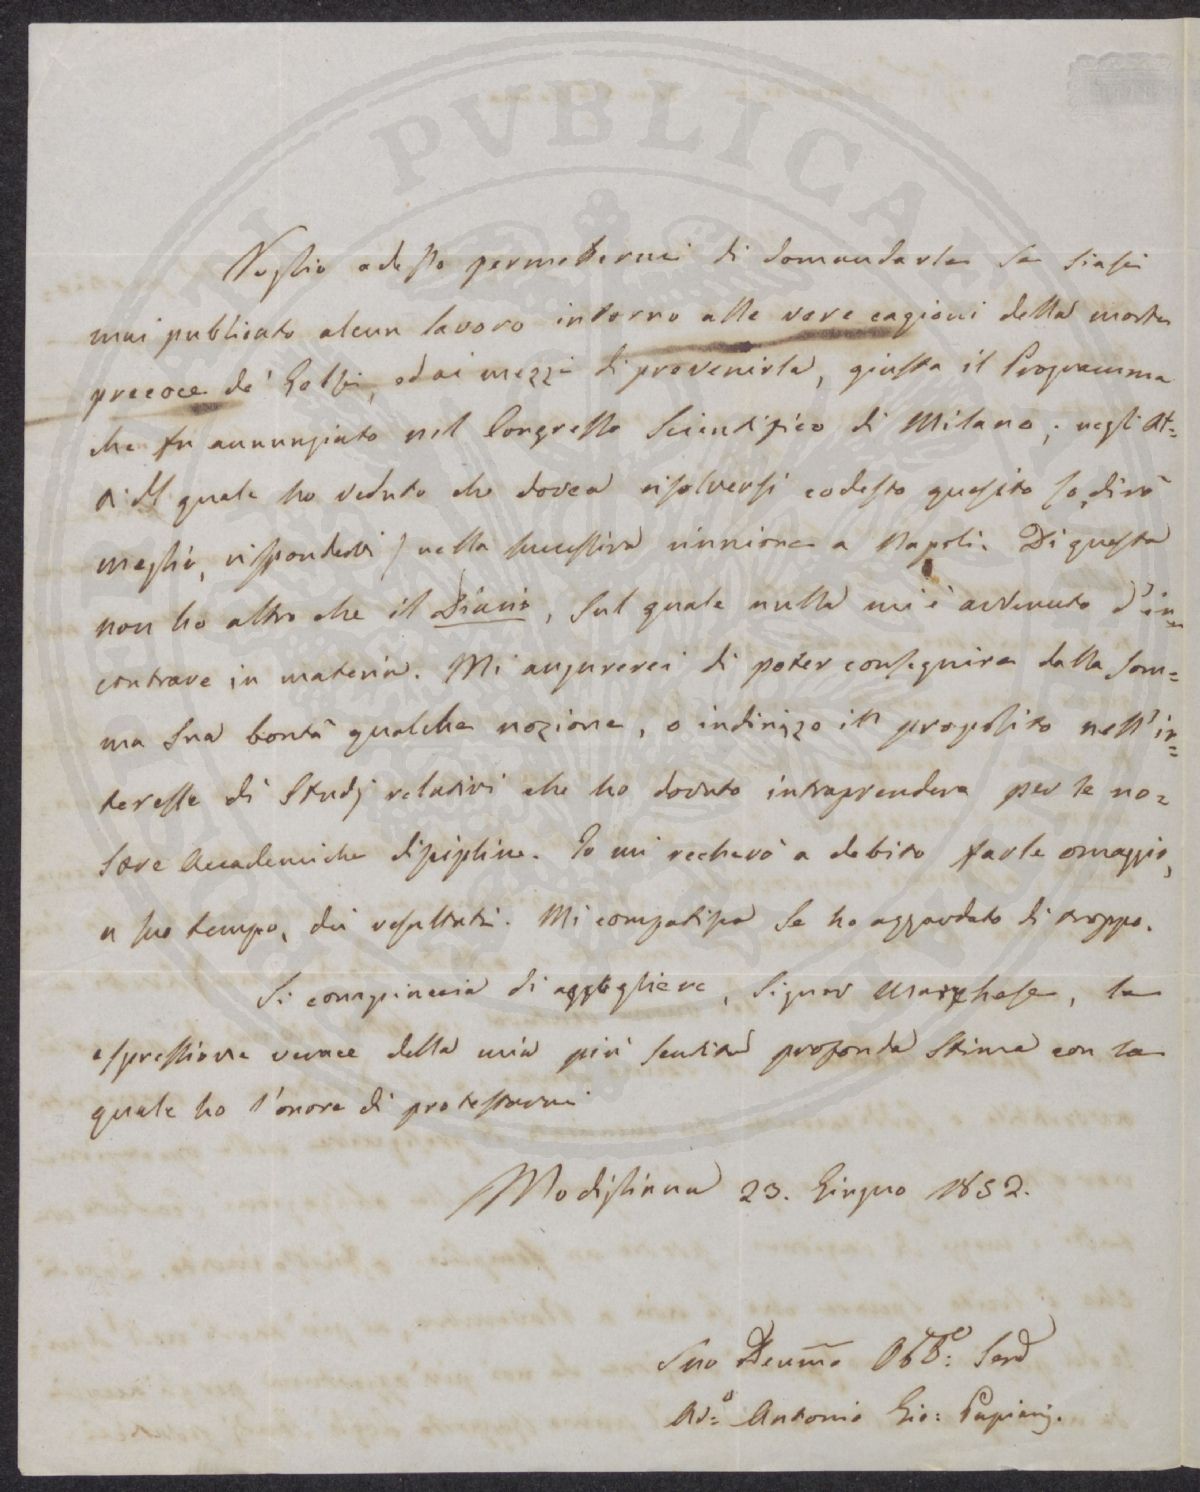 PVBLICAE
Voglio adesso permettermi di domandarle se siasi
mai publicato alcun lavoro intorno alle vere cagioni della morte
precoce de' Gelsi, ed ai mezzi di prevenirla, giusta il Programma
che fu annunziato nel Congresso Scientifico di Milano; negli At=
ti del quale ho veduto che dovea risolversi codesto quesito (o, dirò
meglio, rispondervi) nella successiva riunione a Napoli. Di questa
non ho altro che il Diario, sul quale nulla mi è avvenuto d'in=
contrare in materia. Mi augurerei di poter conseguire dalla som=
ma Sua bontà qualche nozione, o indirizzo in proposito nell'in=
teresse di Studj relativi che ho dovuto intraprendere per le no=
stre Accademiche discipline. Io mi recherò a debito farle omaggio,
a suo tempo, dei resultati. Mi compatisca se ho azzardato di troppo.
Si compiaccia di aggogliere, Signor Marchese, la
espressione verace della mia più sentita profonda stima con la
quale ho l'onore di protestarmi
Modigliana 23. Giugno 1852.
Suo Devmo Obbo: Servo
Avo= Antonio Gio: Papiani.